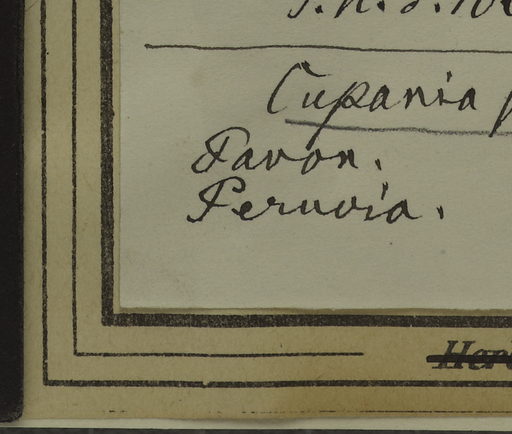 Cupania
Pavon.
Peruvia.